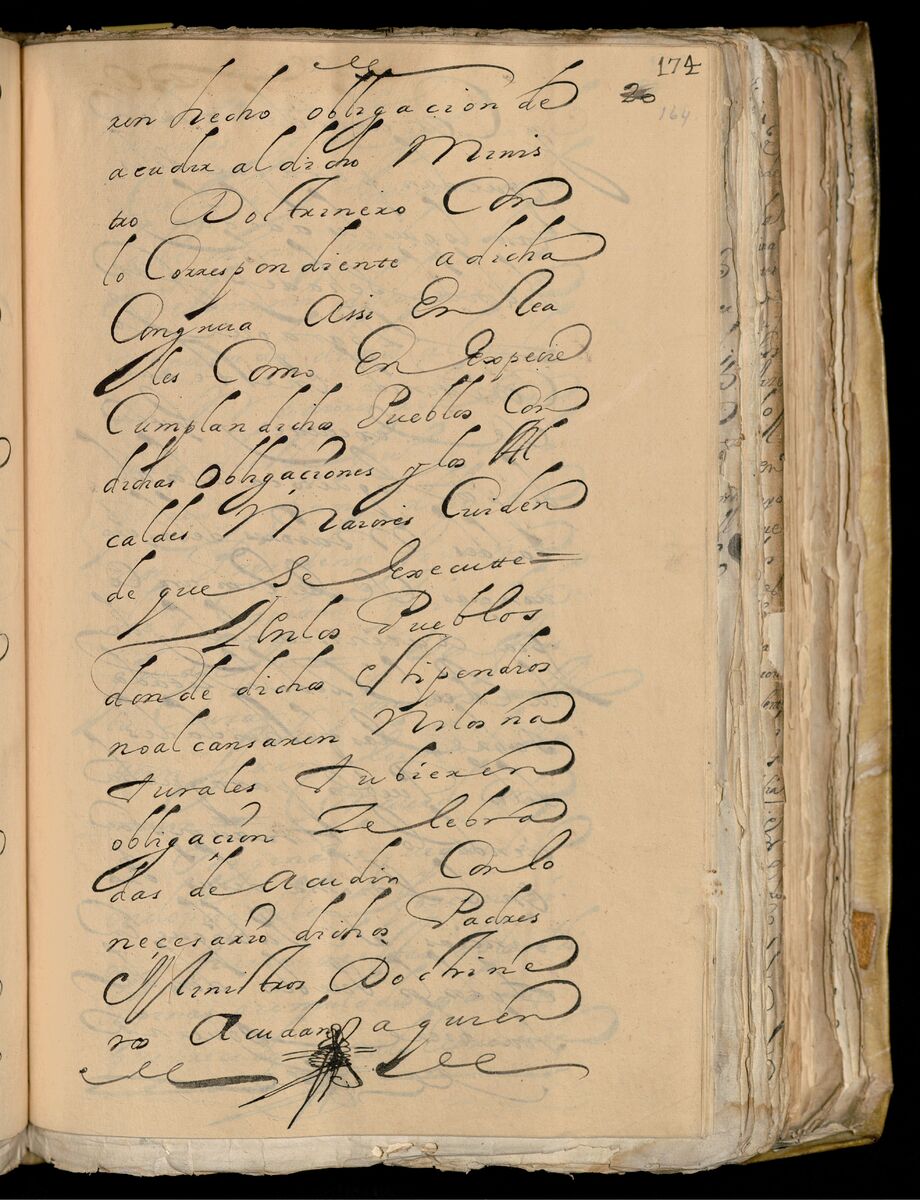 174
20
164
ren hecho obligacion de
acudir al dicho Minis
tro Doctrinero Con
lo Correspondiente a dicha
Congrua Assi En Rea
les Como En Expecie
Cumplan dichos Pueblos Con
dichas obligaciones y los Al
caldes Maiores Cuiden
de que Se Executte =
Y En los Pueblos
donde dichos Stipendios
no alcansaren Ni los na
turales tubieren
obligacion Zelebra
das de Acudir Con lo
necesario dichos Padres
Ministros Doctrine
ros Acudan a quien